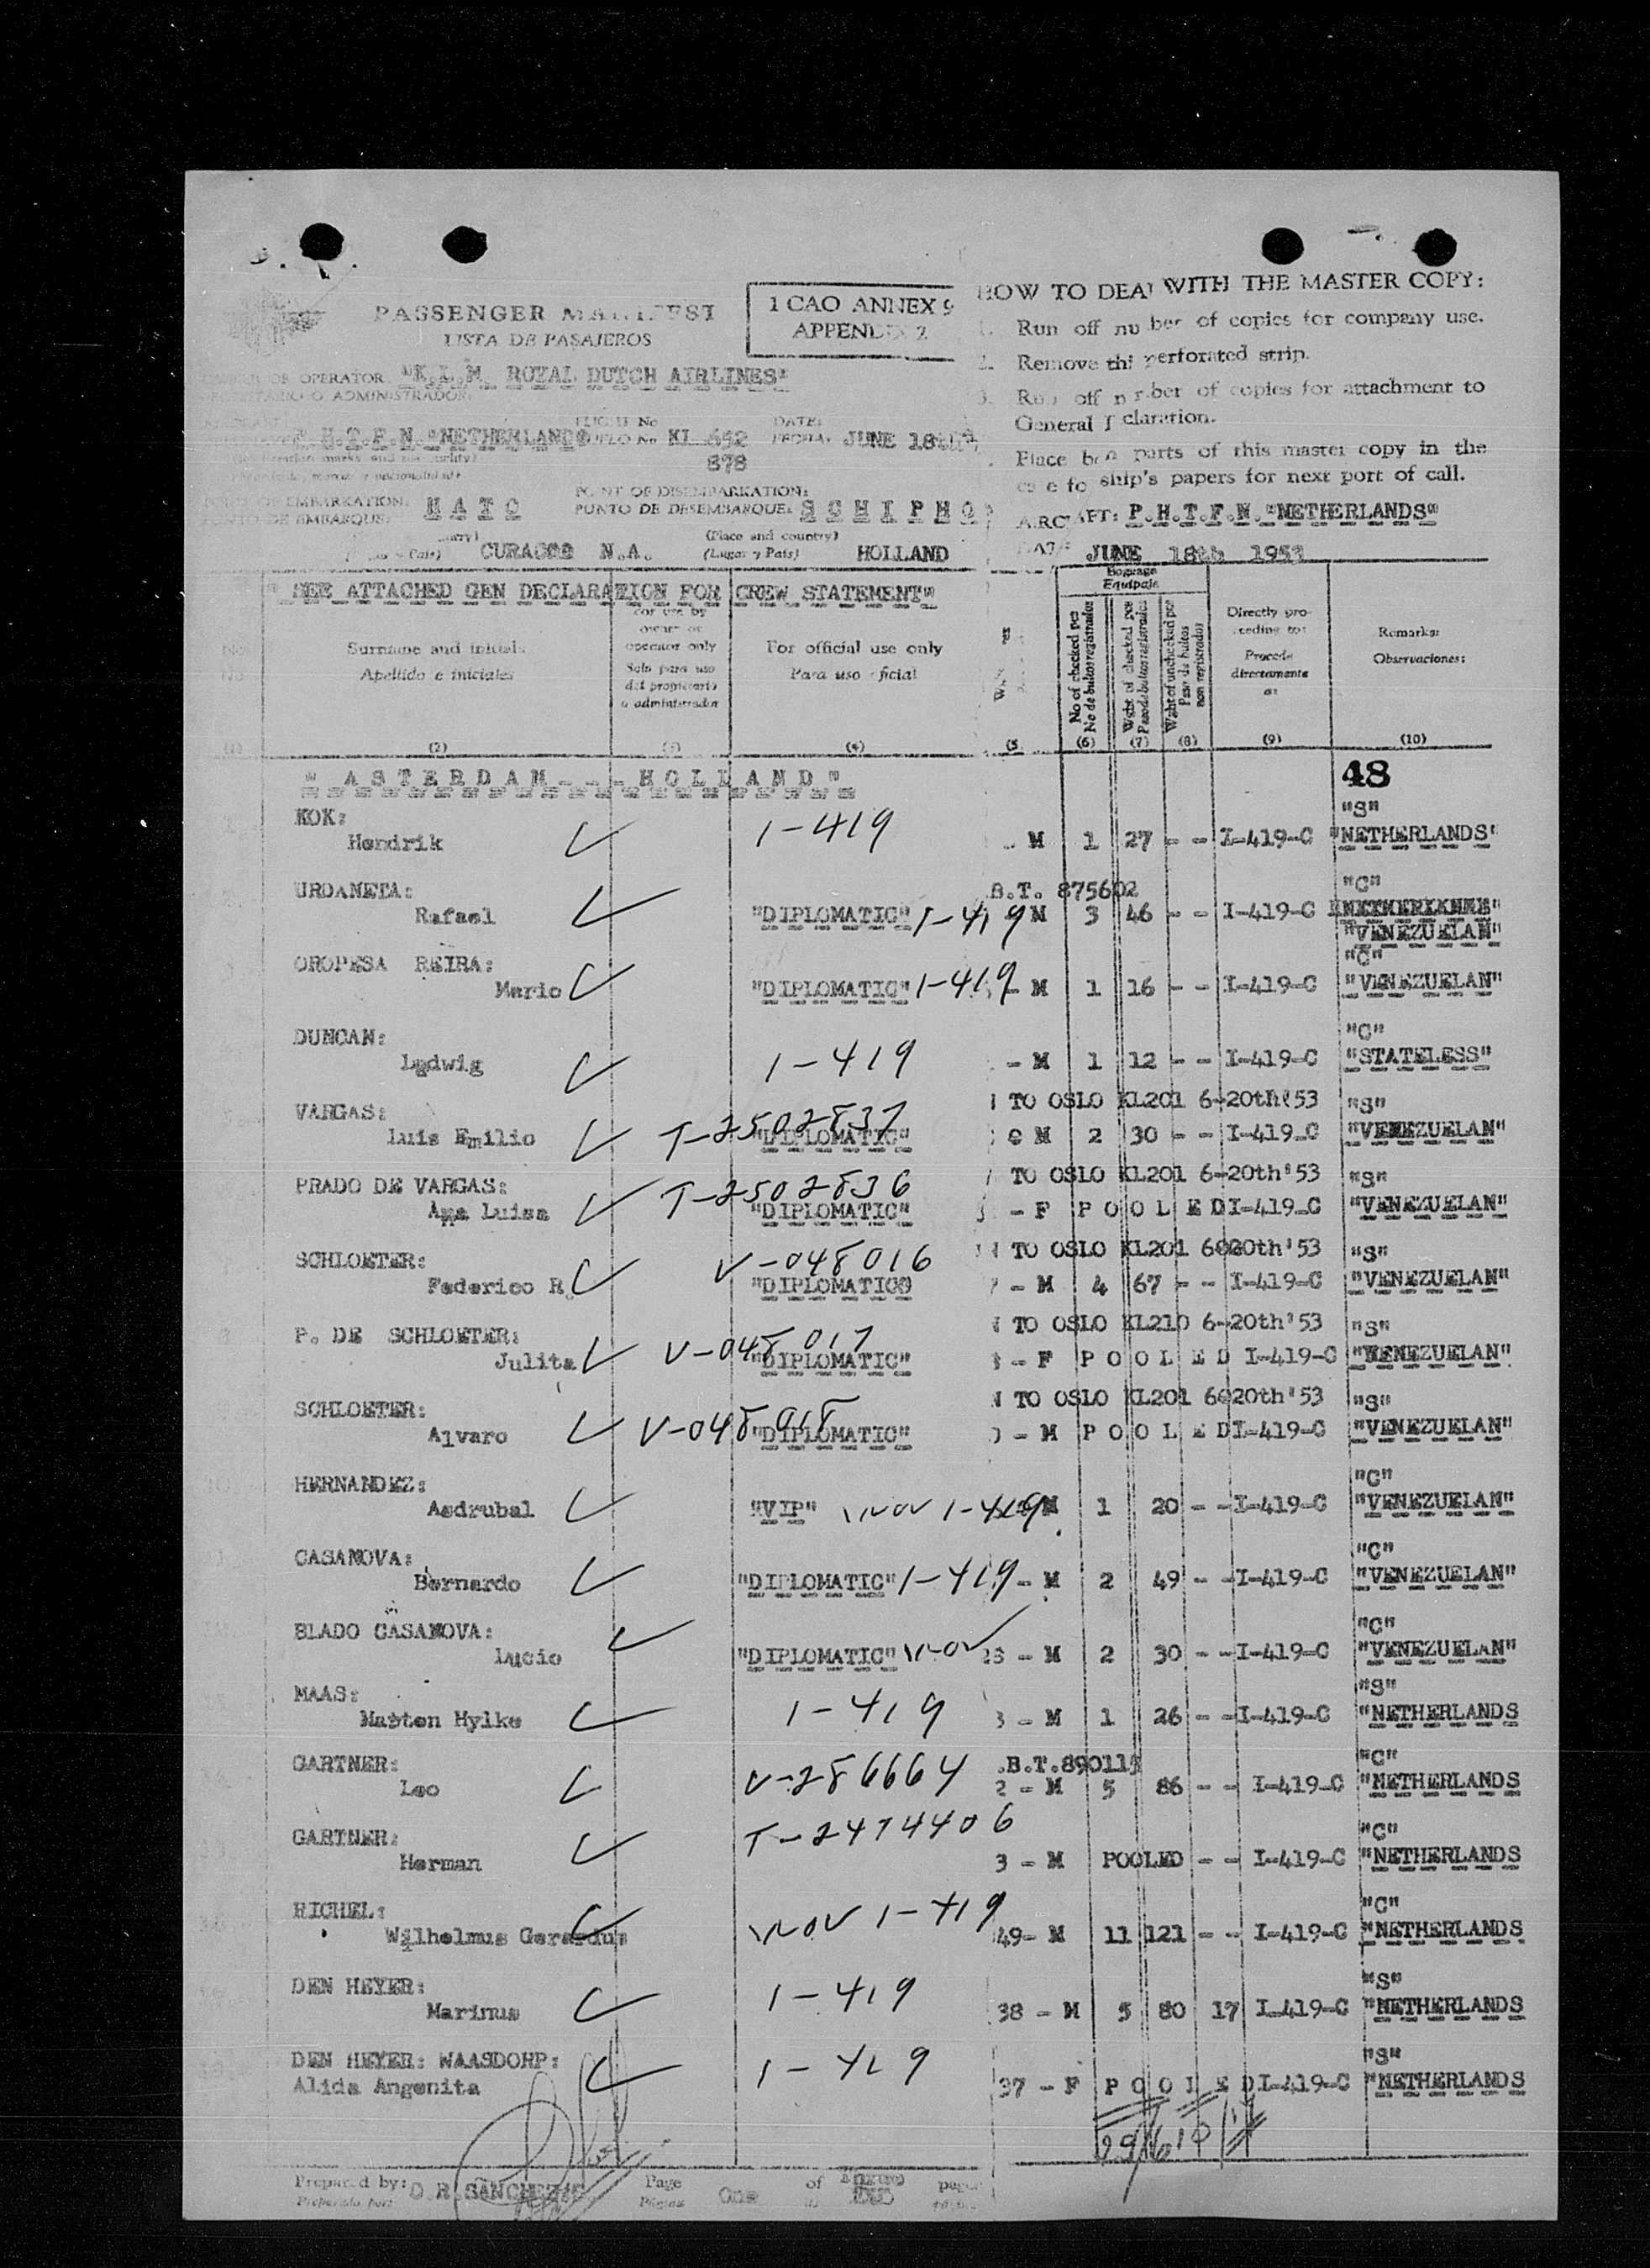 PASSENGER MANIFEST
LISTA DE PASAJEROS
1 CAO ANNEX 9
APPENDIX 2
HOW TO DEAL WITH THE MASTER COPY:
1. Run off number of copies for company use.
2. Remove this perforated strip.
3. Run off number of copies for attachment to
General Declaration.
Place both parts of this master copy in the
ship's papers for next port of call.
OR OPERATOR "K.L.M. ROYAL DUTCH AIRLINES"
O ADMINISTRADOR:
P.H.T.F.N. "NETHERLANDS" FLIGHT No VUELO No KL 652 DATE: FECHA: JUNE 18th
878
PORT OF EMBARKATION: HATO
PUNTO DE EMBARQUE:
POINT OF DISEMBARKATION: SCHIPHO
PUNTO DE DESEMBARQUE:
AIRCRAFT: P.H.T.F.N. "NETHERLANDS"
CURACOO N.A. (Place and country) (Lugar y Pais) HOLLAND
DATE JUNE 18th 1953
" SEE ATTACHED GEN DECLARATION FOR CREW STATEMENT"
No Surname and initials
Apellido e iniciales
For use by owner or operator only
Solo para uso del propietario o administrador
For official use only
Para uso oficial
Baggage
Equipaje
No of checked pcs
No de bultos registrados
Weht of checked pcs
Peso de bultos registrados
Waht of unchecked pcs
Peso de bultos non registrados
Directly proceding to:
Procede directamente a:
Remarks:
Observaciones:
(1) (2) (3) (4) (5 (6) (7) (8) (9) (10)
" A S T E R D A M - - - H O L L A N D "
48
KOK: "S"
Hendrik 1-419 M 1 27 - - I-419-C "NETHERLANDS"
URDANETA: B.T. 875602 "C"
Rafael "DIPLOMATIC" 1-419 M 3 46 - - I-419-C
"VENEZUELAN"
OROPESA REIRA: "C"
Mario "DIPLOMATIC" 1-419 - M 1 16 - - I-419-C "VENEZUELAN"
DUNCAN: "C"
Ludwig 1-419 - M 1 12 - - I-419-C "STATELESS"
VARGAS: T-2502837 TO OSLO KL201 6-20th'53 "S"
Luis Emilio "DIPLOMATIC" M 2 30 - - I-419-C "VENEZUELAN"
PRADO DE VARGAS: T-2502836 TO OSLO KL201 6-20th'53 "S"
Ana Luisa "DIPLOMATIC" - F P O O L E D I-419-C "VENEZUELAN"
SCHLOETER: V-048016 TO OSLO KL201 6@20th'53 "S"
Federico R. "DIPLOMATIC@ - M 4 67 - - I-419-C "VENEZUELAN"
P. DE SCHLOETER: V-048017 TO OSLO KL210 6-20th'53 "S"
Julita "DIPLOMATIC" - F P O O L E D I-419-C "VENEZUELAN"
SCHLOETER: V-048018 TO OSLO KL201 6@20th'53 "S"
Alvaro "DIPLOMATIC" - M P O O L E D I-419-C "VENEZUELAN"
HERNANDEZ: "C"
Asdrubal "VIP" WOV 1-419 M 1 20 - - I-419-C "VENEZUELAN"
CASANOVA: "C"
Bernardo "DIPLOMATIC" 1-419 - M 2 49 - - I-419-C "VENEZUELAN"
BLADO CASANOVA: "C"
Lucio "DIPLOMATIC" WOV - M 2 30 - - I-419-C "VENEZUELAN"
MAAS: "S"
Marten Hylke 1-419 - M 1 26 - - I-419-C "NETHERLANDS
GARTNER: .B.T.890113 "C"
Leo V-286664 2 - M 5 86 - - I-419-C "NETHERLANDS
GARTNER: T-2474406 "C"
Herman 3 - M POOLED - - I-419-C "NETHERLANDS
RICHEL: "C"
Wilhelmus Gerardus WOV 1-419 49- M 11 121 - - I-419-C "NETHERLANDS
DEN HEYER: "S"
Marinus 1-419 38 - M 5 80 17 I-419-C "NETHERLANDS
DEN HEYER: WAASDORP: "S"
Alida Angenita 1-419 37 - F P O O L E D I-419-C "NETHERLANDS
29/610/17
Prepared by: O.R. SANCHEZ
Preparado por:
Page One of
Página